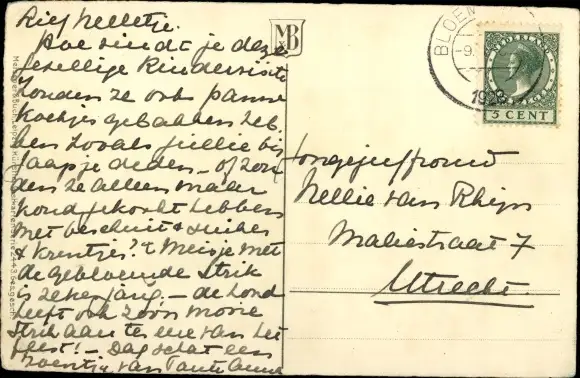 Lief Nelletje.
Hoe vindt je deze
gezellige Kindervisite
Zouden ze ook panne
koekjes gebakken heb
ben zooals jullie bij
aapje deden - of zou
den ze alleen maar
hond gekookt hebben
met beschuit & suiker
& krentjes? 't Meisje met
de gebloemde strik
is zeker jarig. - de hond
heeft ook zoo'n mooie
strik aan ter eere van het
feest! - Dag schat een
zoentje van Tante Anna
MB
BLOEM
-9.
1929
NEDERLAND
5 CENT
Jongejuffrouw
Nellie van Rhijn
Maliestraat 7
Utrecht.